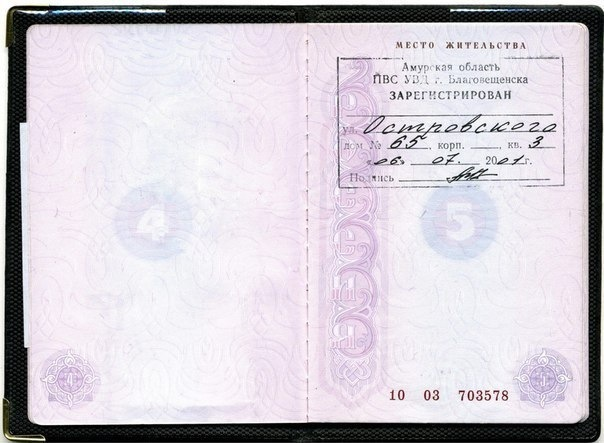 МЕСТО ЖИТЕЛЬСТВА
Амурская область
ПВС УВД г. Благовещенска
ЗАРЕГИСТРИРОВАН
ул. Островского
дом № 65, корп. ____ , кв. 3
«06» 07. 2001 г.
Подпись
4
5
10 03 703578